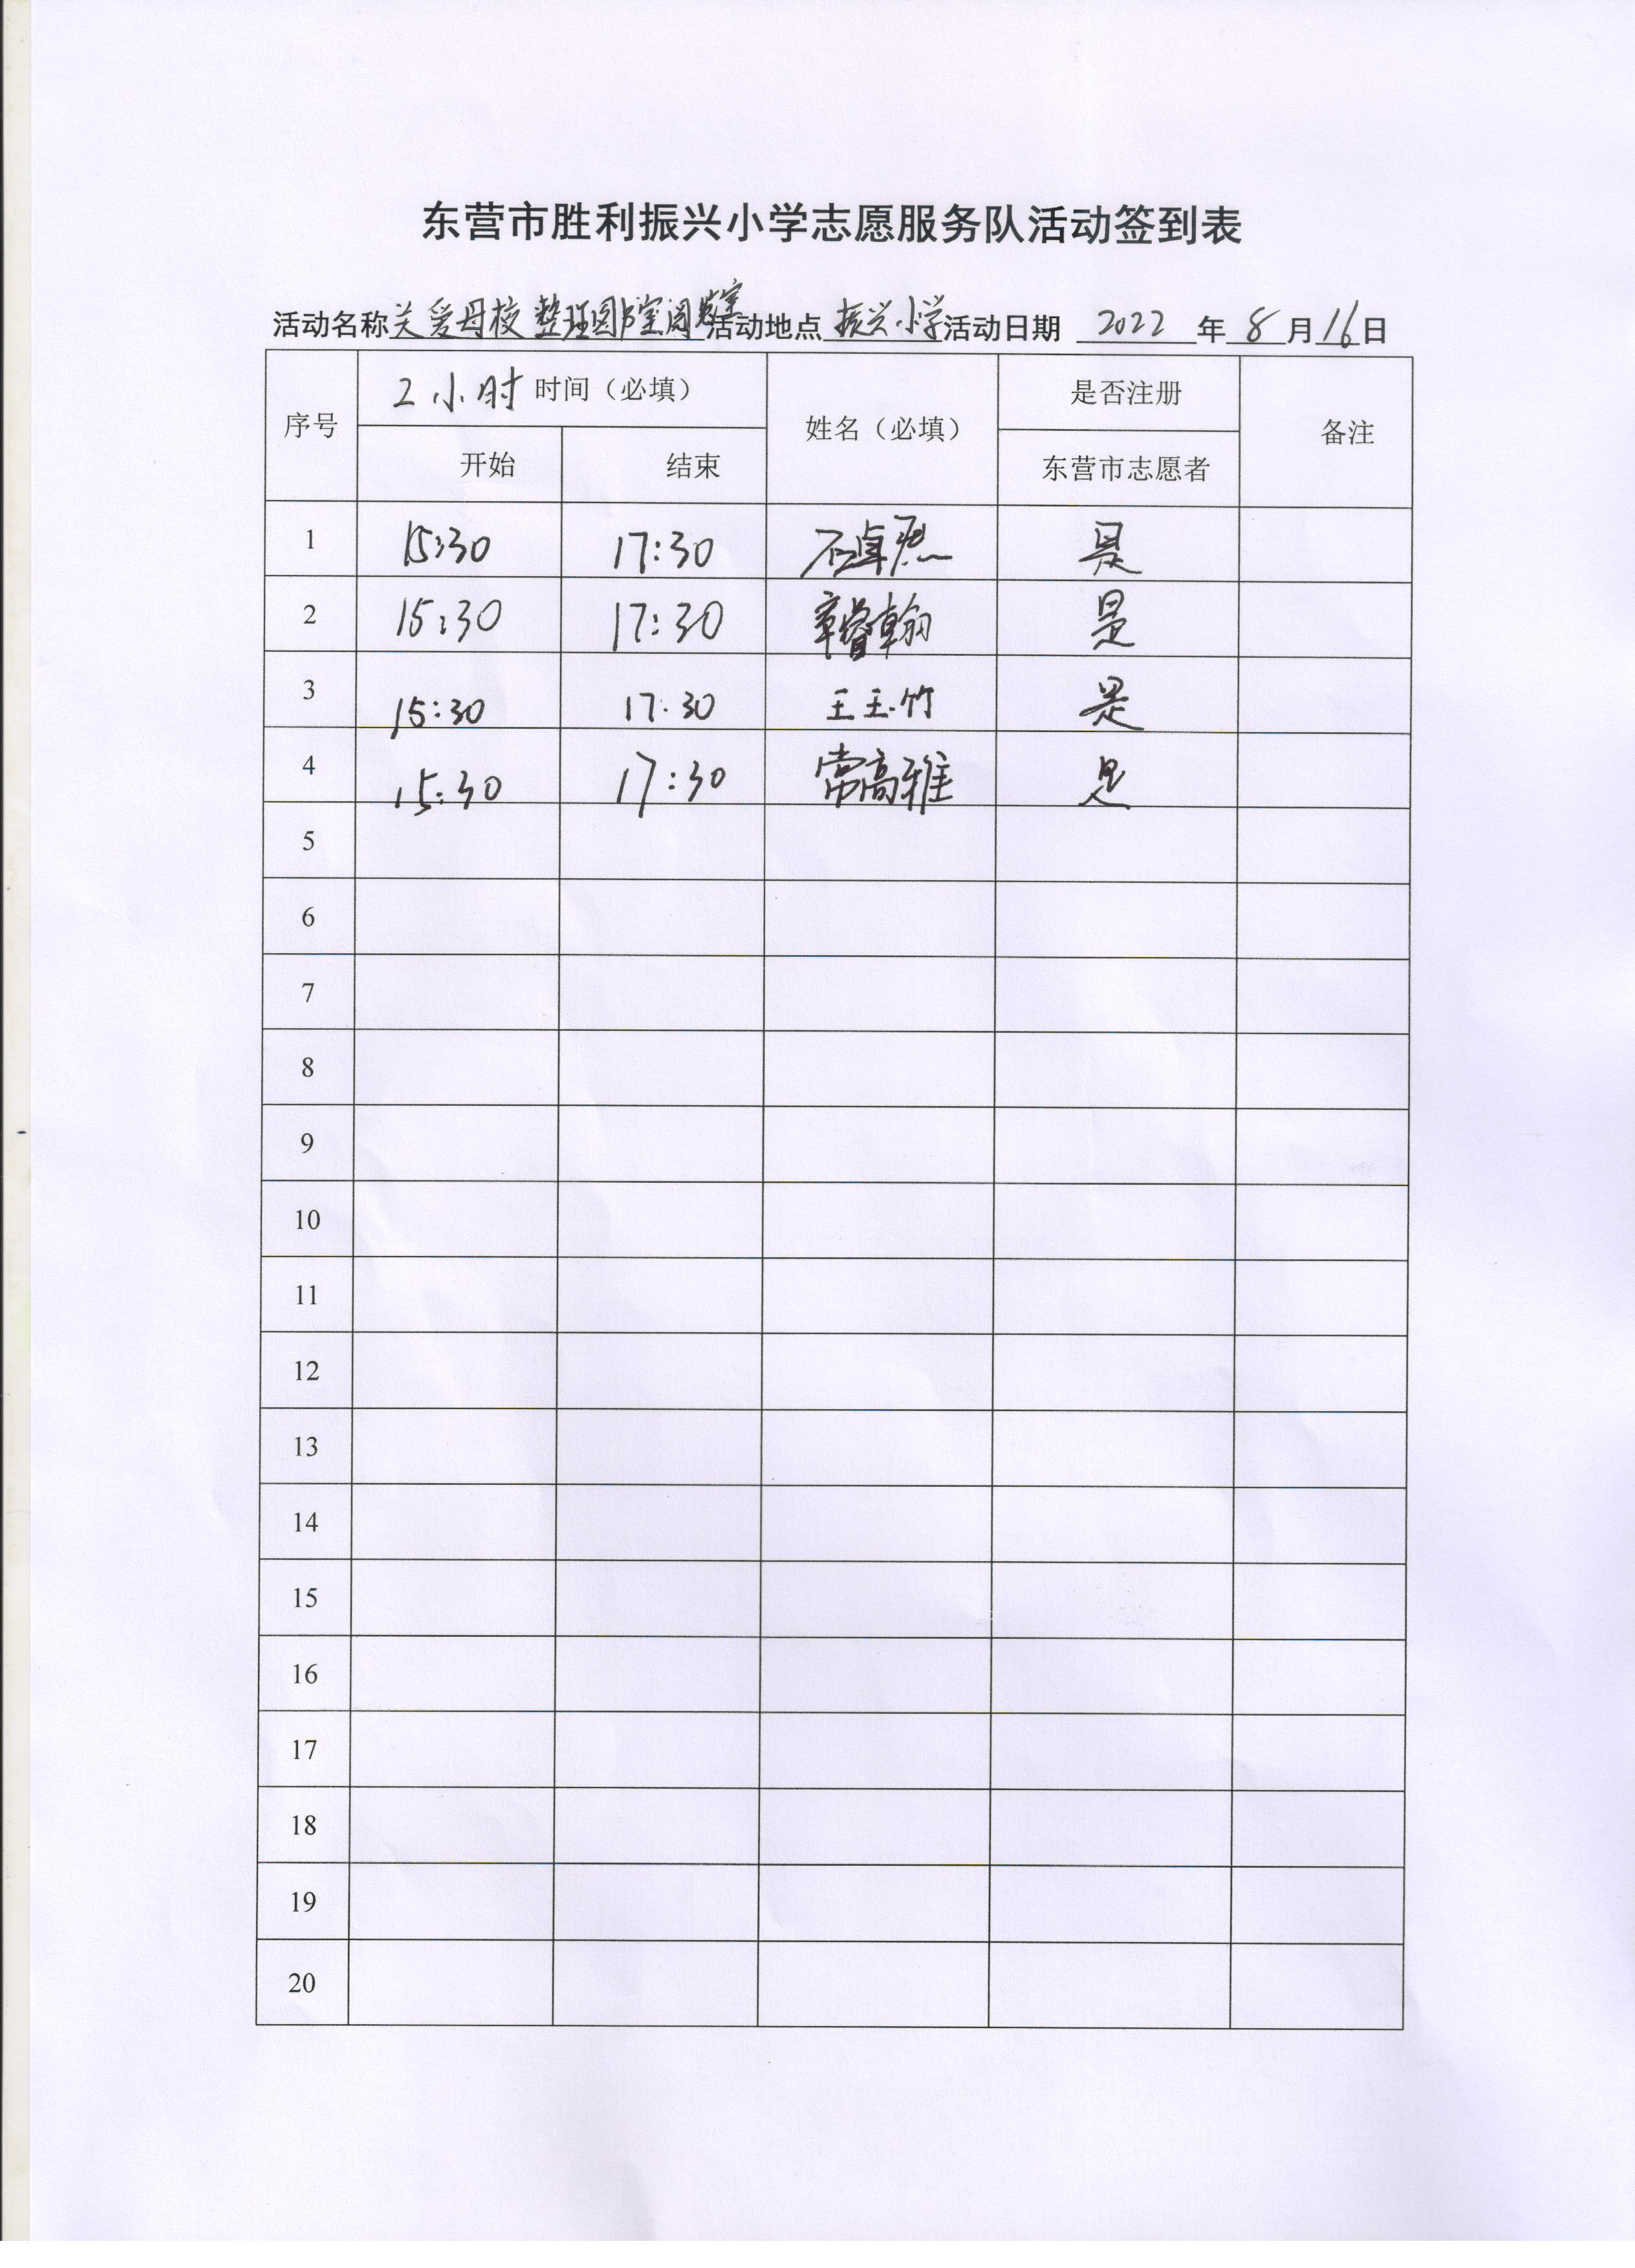 东营市胜利振兴小学志愿服务队活动签到表
活动名称 关爱母校 整理图书室阅览室 活动地点 振兴小学 活动日期 2022 年 8 月 16 日
序号 2小时 时间（必填） 姓名（必填） 是否注册 备注
开始 结束 东营市志愿者
1 15:30 17:30 石卓 是
2 15:30 17:30 睿翰 是
3 15:30 17:30 王玉竹 是
4 15:30 17:30 常高雅 是
5
6
7
8
9
10
11
12
13
14
15
16
17
18
19
20